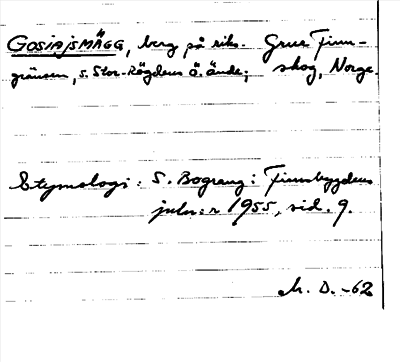 GOSIAJSMÄGG, berg på riks- Grue Finn-
gränsen, s. Stor-Rögdens ö. ände; skog, Norge.
Etymologi: S. Bograng: Finnbygdens
julnr 1955, sid. 9.
M. D. -62